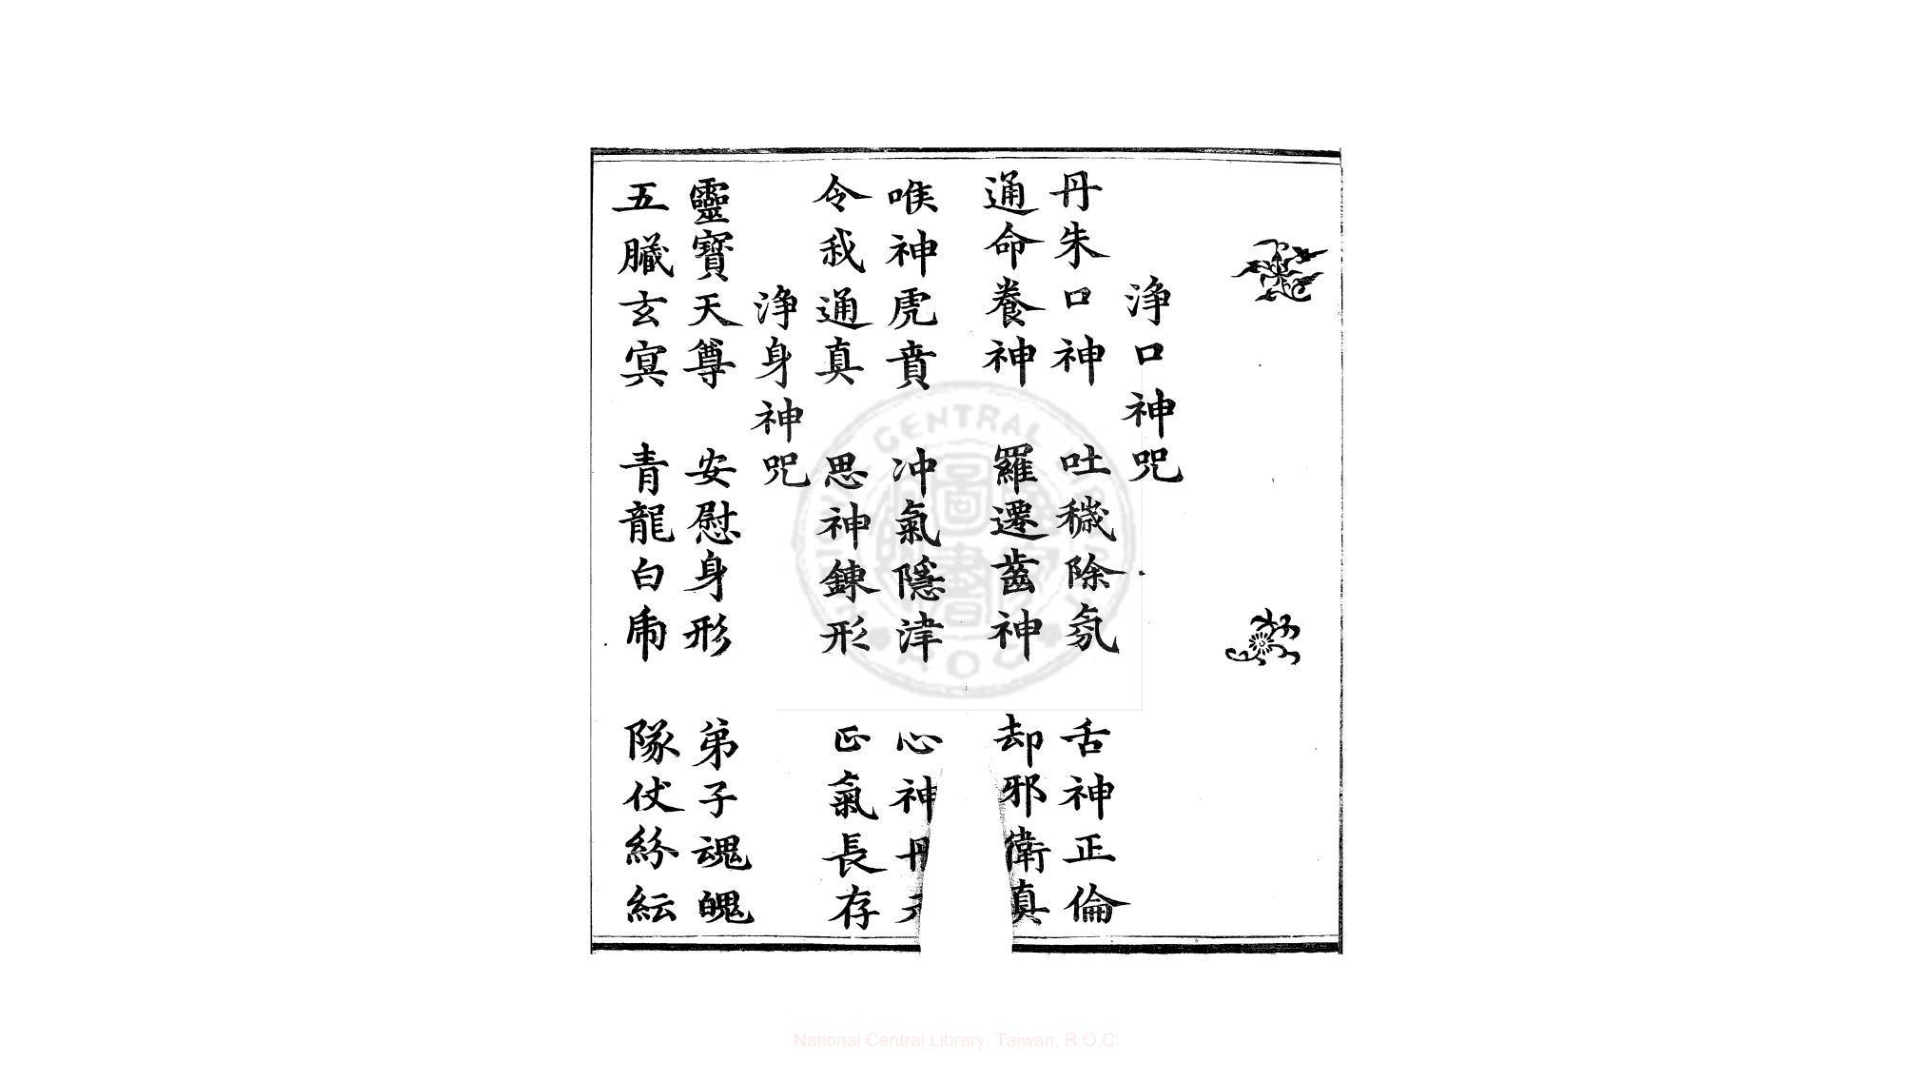 淨口神咒
丹朱口神 吐穢除氛 舌神正倫
通命養神 羅遷齒神 却邪衛真
喉神虎賁 冲氣隱津 心神丹
令我通真 思神鍊形 正氣長存
淨身神咒
靈寶天尊 安慰身形 弟子魂魄
五臟玄冥 青龍白虎 隊仗紛紜
CENTRAL
圖
書
National Central Library, Taiwan, R.O.C.